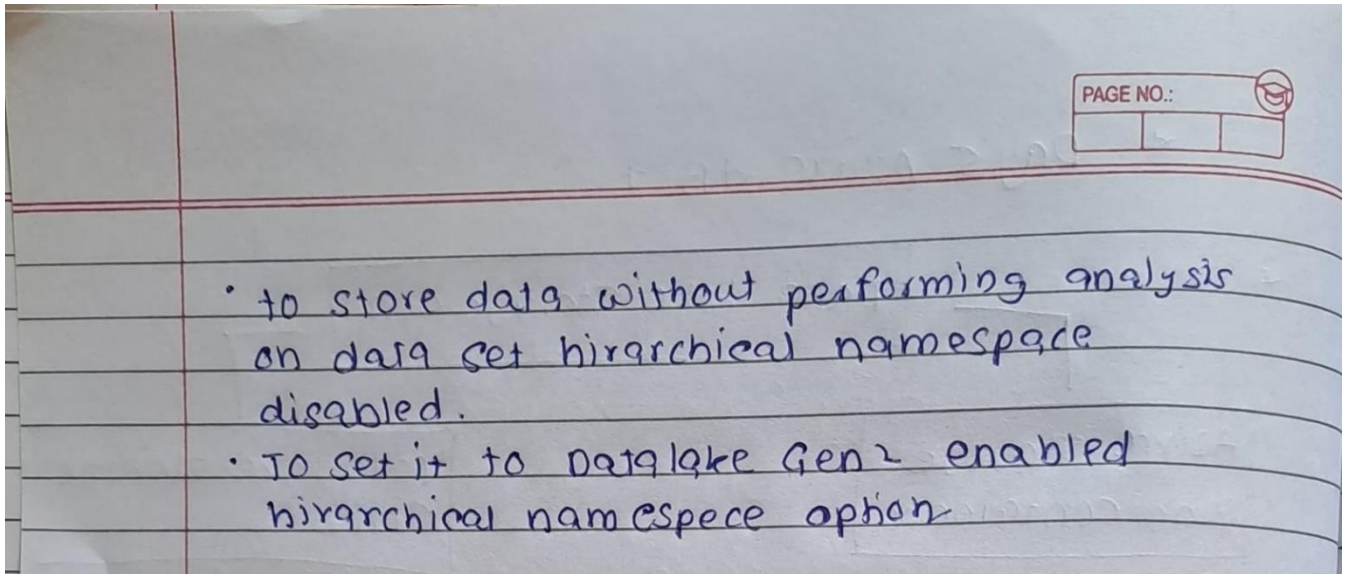 PAGE NO.:
• to store data without performing analysis
on data set hirarchical namespace
disabled.
• To set it to Datalake Gen2 enabled
hirarchical namespece option